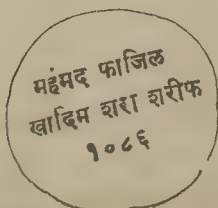 महंमद फाजिल
खादिम शरा शरीफ
१०८६